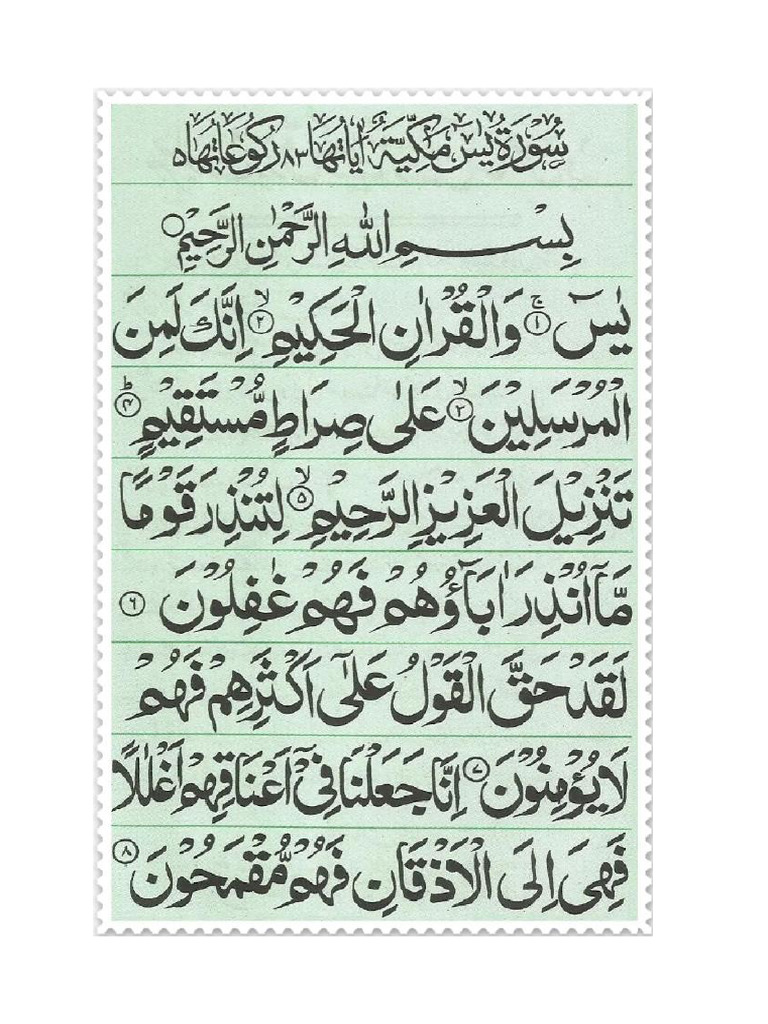 سُوْرَةُ يٰسٓ مَكِّيَّةٌ اٰيَاتُهَا ٨٣ رُكُوْعَاتُهَا ٥
بِسْمِ اللّٰهِ الرَّحْمٰنِ الرَّحِيْمِ ○
يٰسٓ ۚ ﴿١﴾ وَالْقُرْاٰنِ الْحَكِيْمِ ۙ ﴿٢﴾ اِنَّكَ لَمِنَ
الْمُرْسَلِيْنَ ۙ ﴿٣﴾ عَلٰى صِرَاطٍ مُّسْتَقِيْمٍ ؕ ﴿۴﴾
تَنْزِيْلَ الْعَزِيْزِ الرَّحِيْمِ ۙ ﴿۵﴾ لِتُنْذِرَ قَوْمًا
مَّاۤ اُنْذِرَ اٰبَآؤُهُمْ فَهُمْ غٰفِلُوْنَ ﴿٦﴾
لَقَدْ حَقَّ الْقَوْلُ عَلٰۤى اَكْثَرِهِمْ فَهُمْ
لَا يُؤْمِنُوْنَ ﴿٧﴾ اِنَّا جَعَلْنَا فِيْۤ اَعْنَاقِهِمْ اَغْلٰلًا
فَهِيَ اِلَى الْاَذْقَانِ فَهُمْ مُّقْمَحُوْنَ ﴿٨﴾